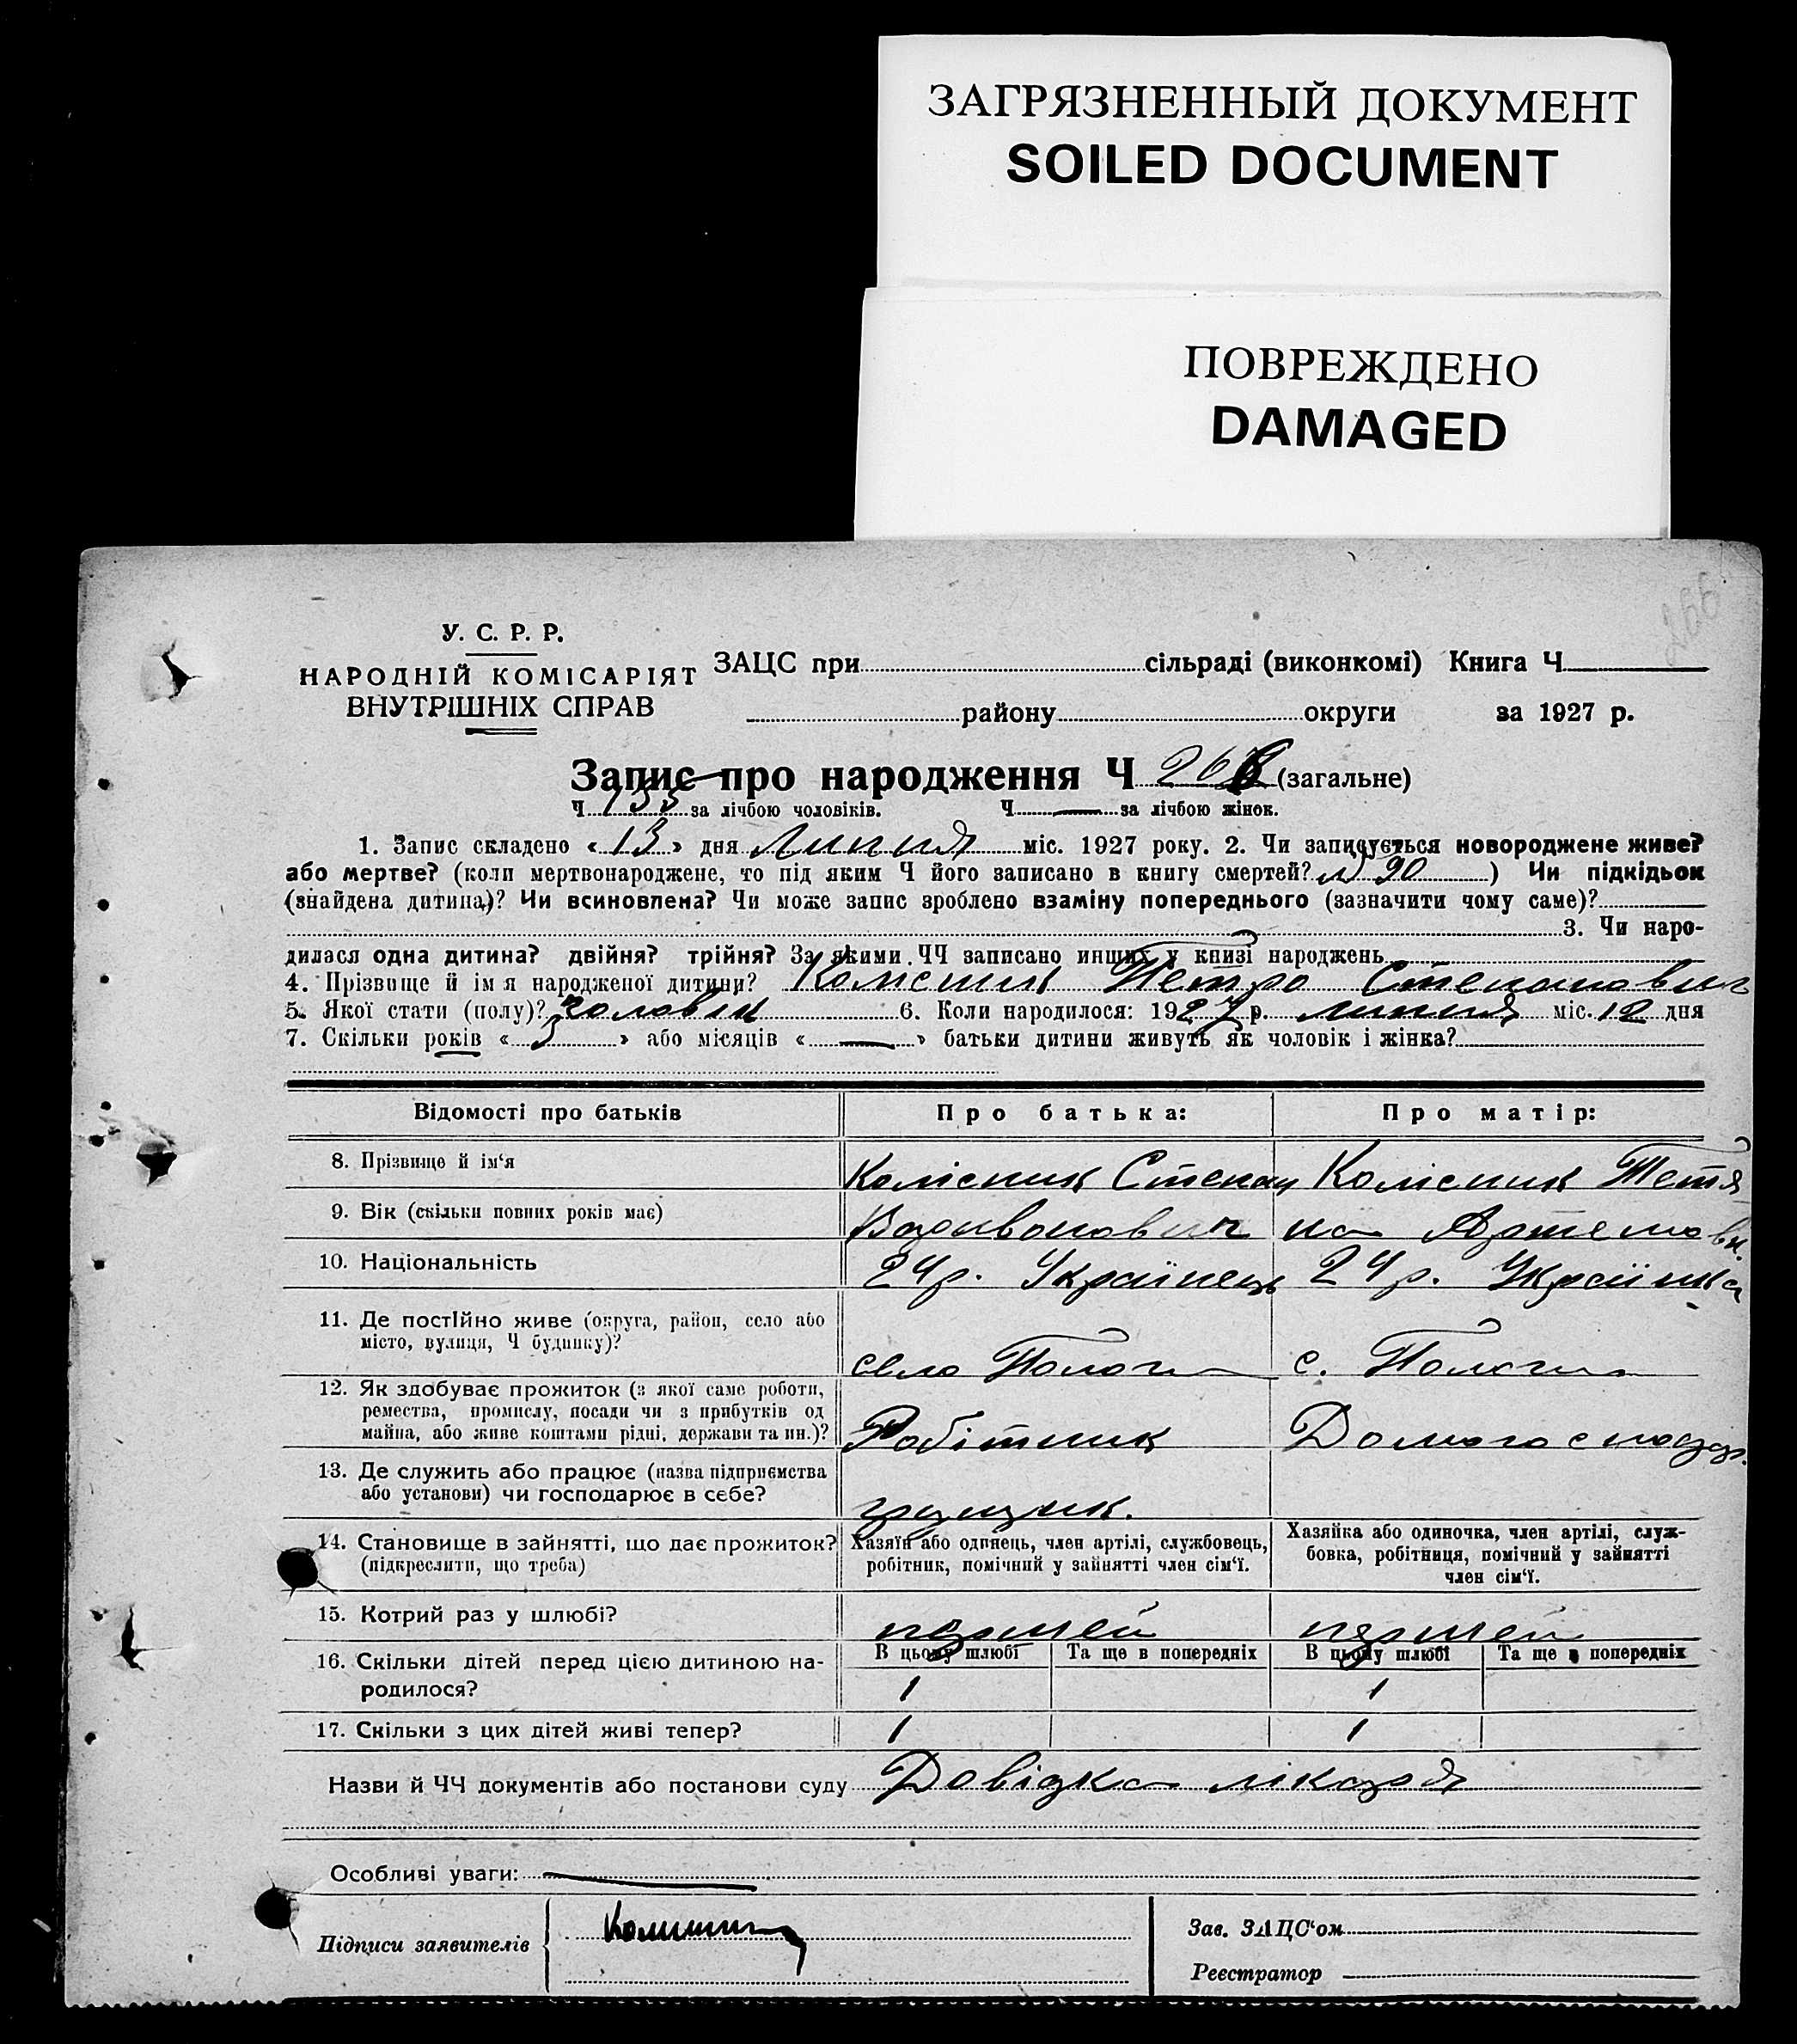 ЗАГРЯЗНЕННЫЙ ДОКУМЕНТ
SOILED DOCUMENT
ПОВРЕЖДЕНО
DAMAGED
266
У. С. Р. Р.
НАРОДНІЙ КОМІСАРІЯТ
ВНУТРІШНІХ СПРАВ
ЗАЦС при сільраді (виконкомі) Книга Ч.
району округи за 1927 р.
Запис про народження Ч 266 (загальне)
Ч 135 за лічбою чоловіків. Ч — за лічбою жінок.
1. Запис складено « 13 » дня Липня міс. 1927 року. 2. Чи записується новороджене живе?
або мертве? (коли мертвонароджене, то під яким Ч його записано в книгу смертей? № 90 ) Чи підкідьок
(знайдена дитина)? Чи всиновлена? Чи може запис зроблено взаміну попереднього (зазначити чому саме)?
3. Чи наро-
дилася одна дитина? двійня? трійня? За якими ЧЧ записано инших у книзі народжень
4. Прізвище й ім я народженої дитини? Колісник Петро Степанович
5. Якої стати (полу)? чоловік 6. Коли народилося: 1927 р. липня міс. 12 дня
7. Скільки років « 3 » або місяців « — » батьки дитини живуть як чоловік і жінка?
Відомості про батьків Про батька: Про матір:
8. Прізвище й ім‘я Колісник Степан Колісник Тетя
9. Вік (скільки повних років має) на Артемовн.
10. Національність 24 р. Українець 24 р. Українка
11. Де постійно живе (округа, район, село або
місто, вулиця, Ч будинку)? село Пологи с. Пологи
12. Як здобуває прожиток (з якої саме роботи,
ремества, промислу, посади чи з прибутків од
майна, або живе коштами рідні, держави та ин.)? Робітник Домогосподар.
13. Де служить або працює (назва підприємства
або установи) чи господарює в себе?
14. Становище в зайнятті, що дає прожиток?
(підкреслити, що треба)
Хазяїн або одинець, член артілі, службовець,
робітник, помічний у зайнятті член сім‘ї.
Хазяйка або одиночка, член артілі, служ-
бовка, робітниця, помічний у зайнятті
член сім‘ї.
15. Котрий раз у шлюбі? першей першей
16. Скільки дітей перед цією дитиною на-
родилося?
В цьому шлюбі Та ще в попередніх В цьому шлюбі Та ще в попередніх
1 1
17. Скільки з цих дітей живі тепер? 1 1
Назви й ЧЧ документів або постанови суду Довідка лікаря
Особливі уваги: —
Підписи заявителів
Зав. ЗАЦС‘ом
Реєстратор